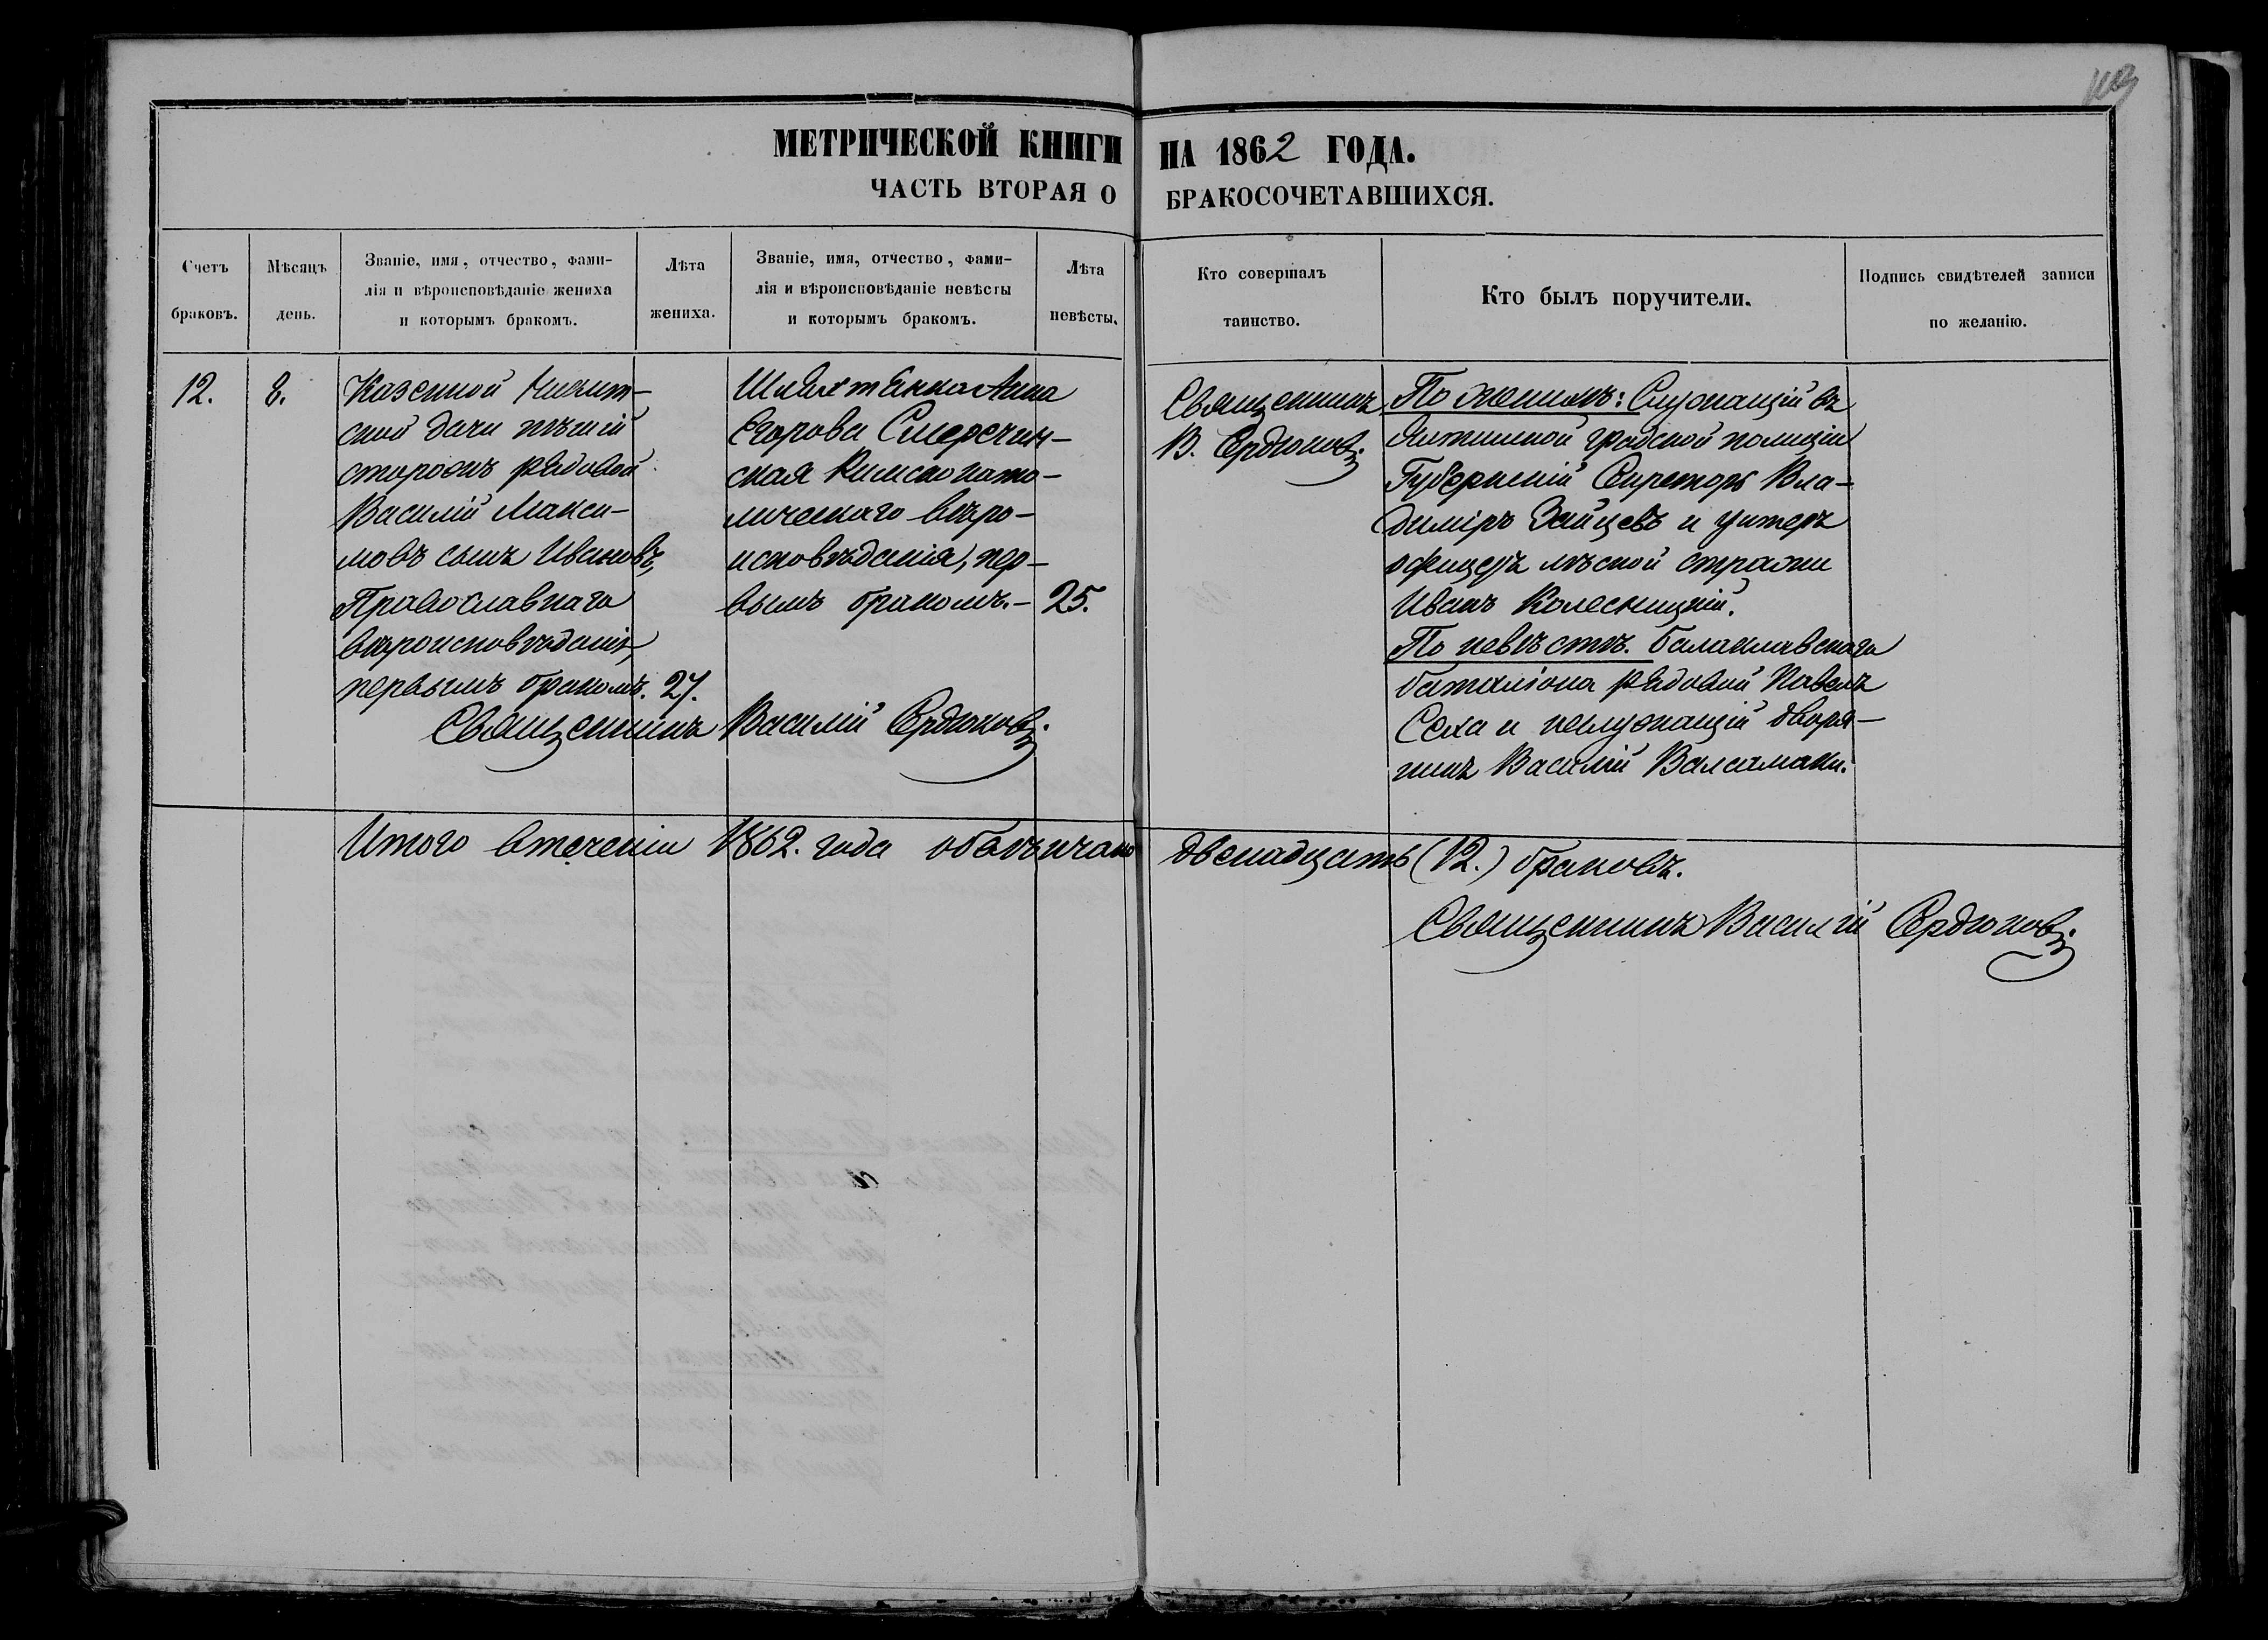 МЕТРИЧЕСКОЙ КНИГИ НА 1862 ГОДА.
ЧАСТЬ ВТОРАЯ О БРАКОСОЧЕТАВШИХСЯ.
Счетъ браковъ.
Мѣсяцъ день.
Званіе, имя, отчество, фами-
лія и вѣроисповѣданіе жениха
и которымъ бракомъ.
Лѣта жениха.
Званіе, имя, отчество, фами-
лія и вѣроисповѣданіе невѣсты
и которымъ бракомъ.
Лѣта невѣсты.
Кто совершалъ
таинство.
Кто былъ поручители.
Подпись свидѣтелей записи
по желанію.
12.
8.
Казенной Никит-
ской дачи пѣшій
сторожъ рядовой
Василій Макси-
мовъ сынъ Ивановъ,
Православнаго
вѣроисповѣданія,
первымъ бракомъ.
27.
Шляхтянка Анна
Егорова Смеречин-
ская Римскокато-
лическаго вѣро-
исповѣданія, пер-
вымъ бракомъ.-
25.
Священникъ
В. Сердюковъ.
По женихѣ: Служащій въ
Ялтинской градской полиціи
Губернскій Секретарь Вла-
диміръ Зайцевъ и унтеръ
офицеръ лѣсной стражи
Иванъ Колесницкій.
По невѣстѣ. Балаклавскаго
баталіона рядовой Павелъ
Сеха и неслужащій дворя-
нинъ Василій Валсамаки.
Священникъ Василій Сердюковъ.
Итого втеченіи 1862. года обвѣнчано двенадцать (12.) браковъ.
Священникъ Василій Сердюковъ.